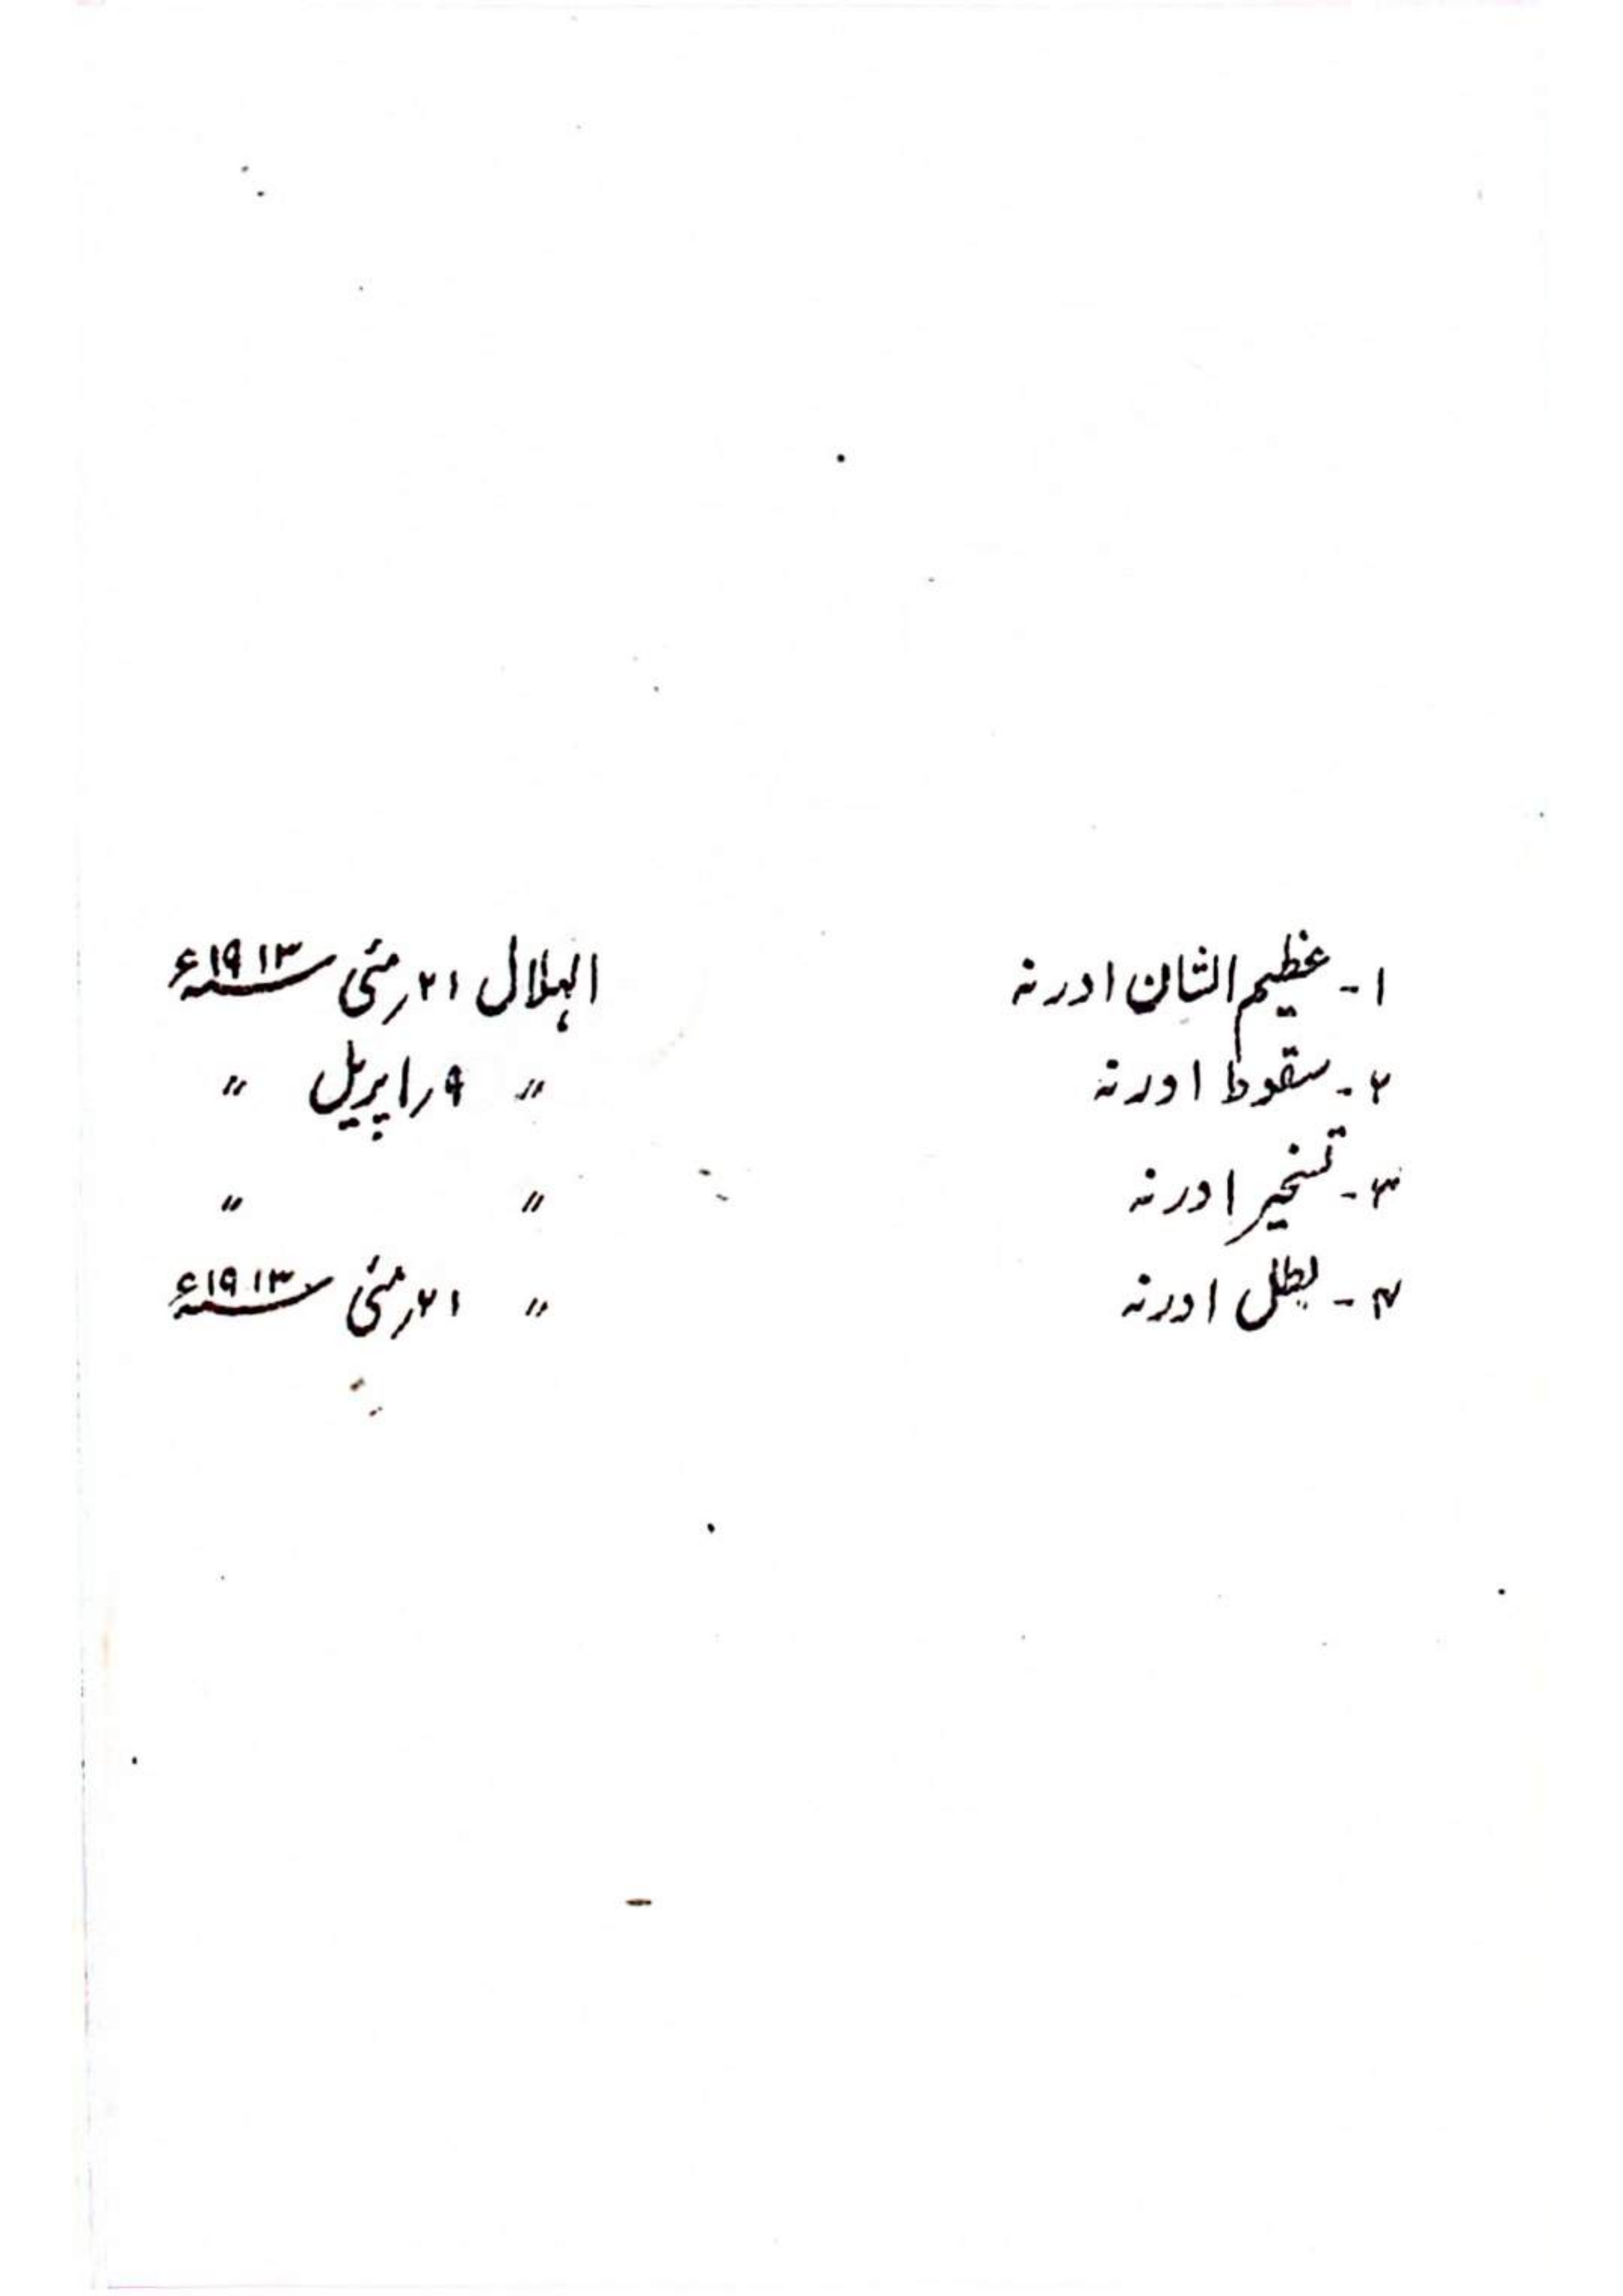 ۱۔ عظیم الشان ادرنہ الہلال ۲۱؍ مئی ۱۹۱۳؁ء
۲۔ سقوط ادرنہ 〃 ۹؍ اپریل 〃
۳۔ تسخیر ادرنہ 〃 〃
۴۔ بطل ادرنہ 〃 ۲۱؍ مئی ۱۹۱۳؁ء